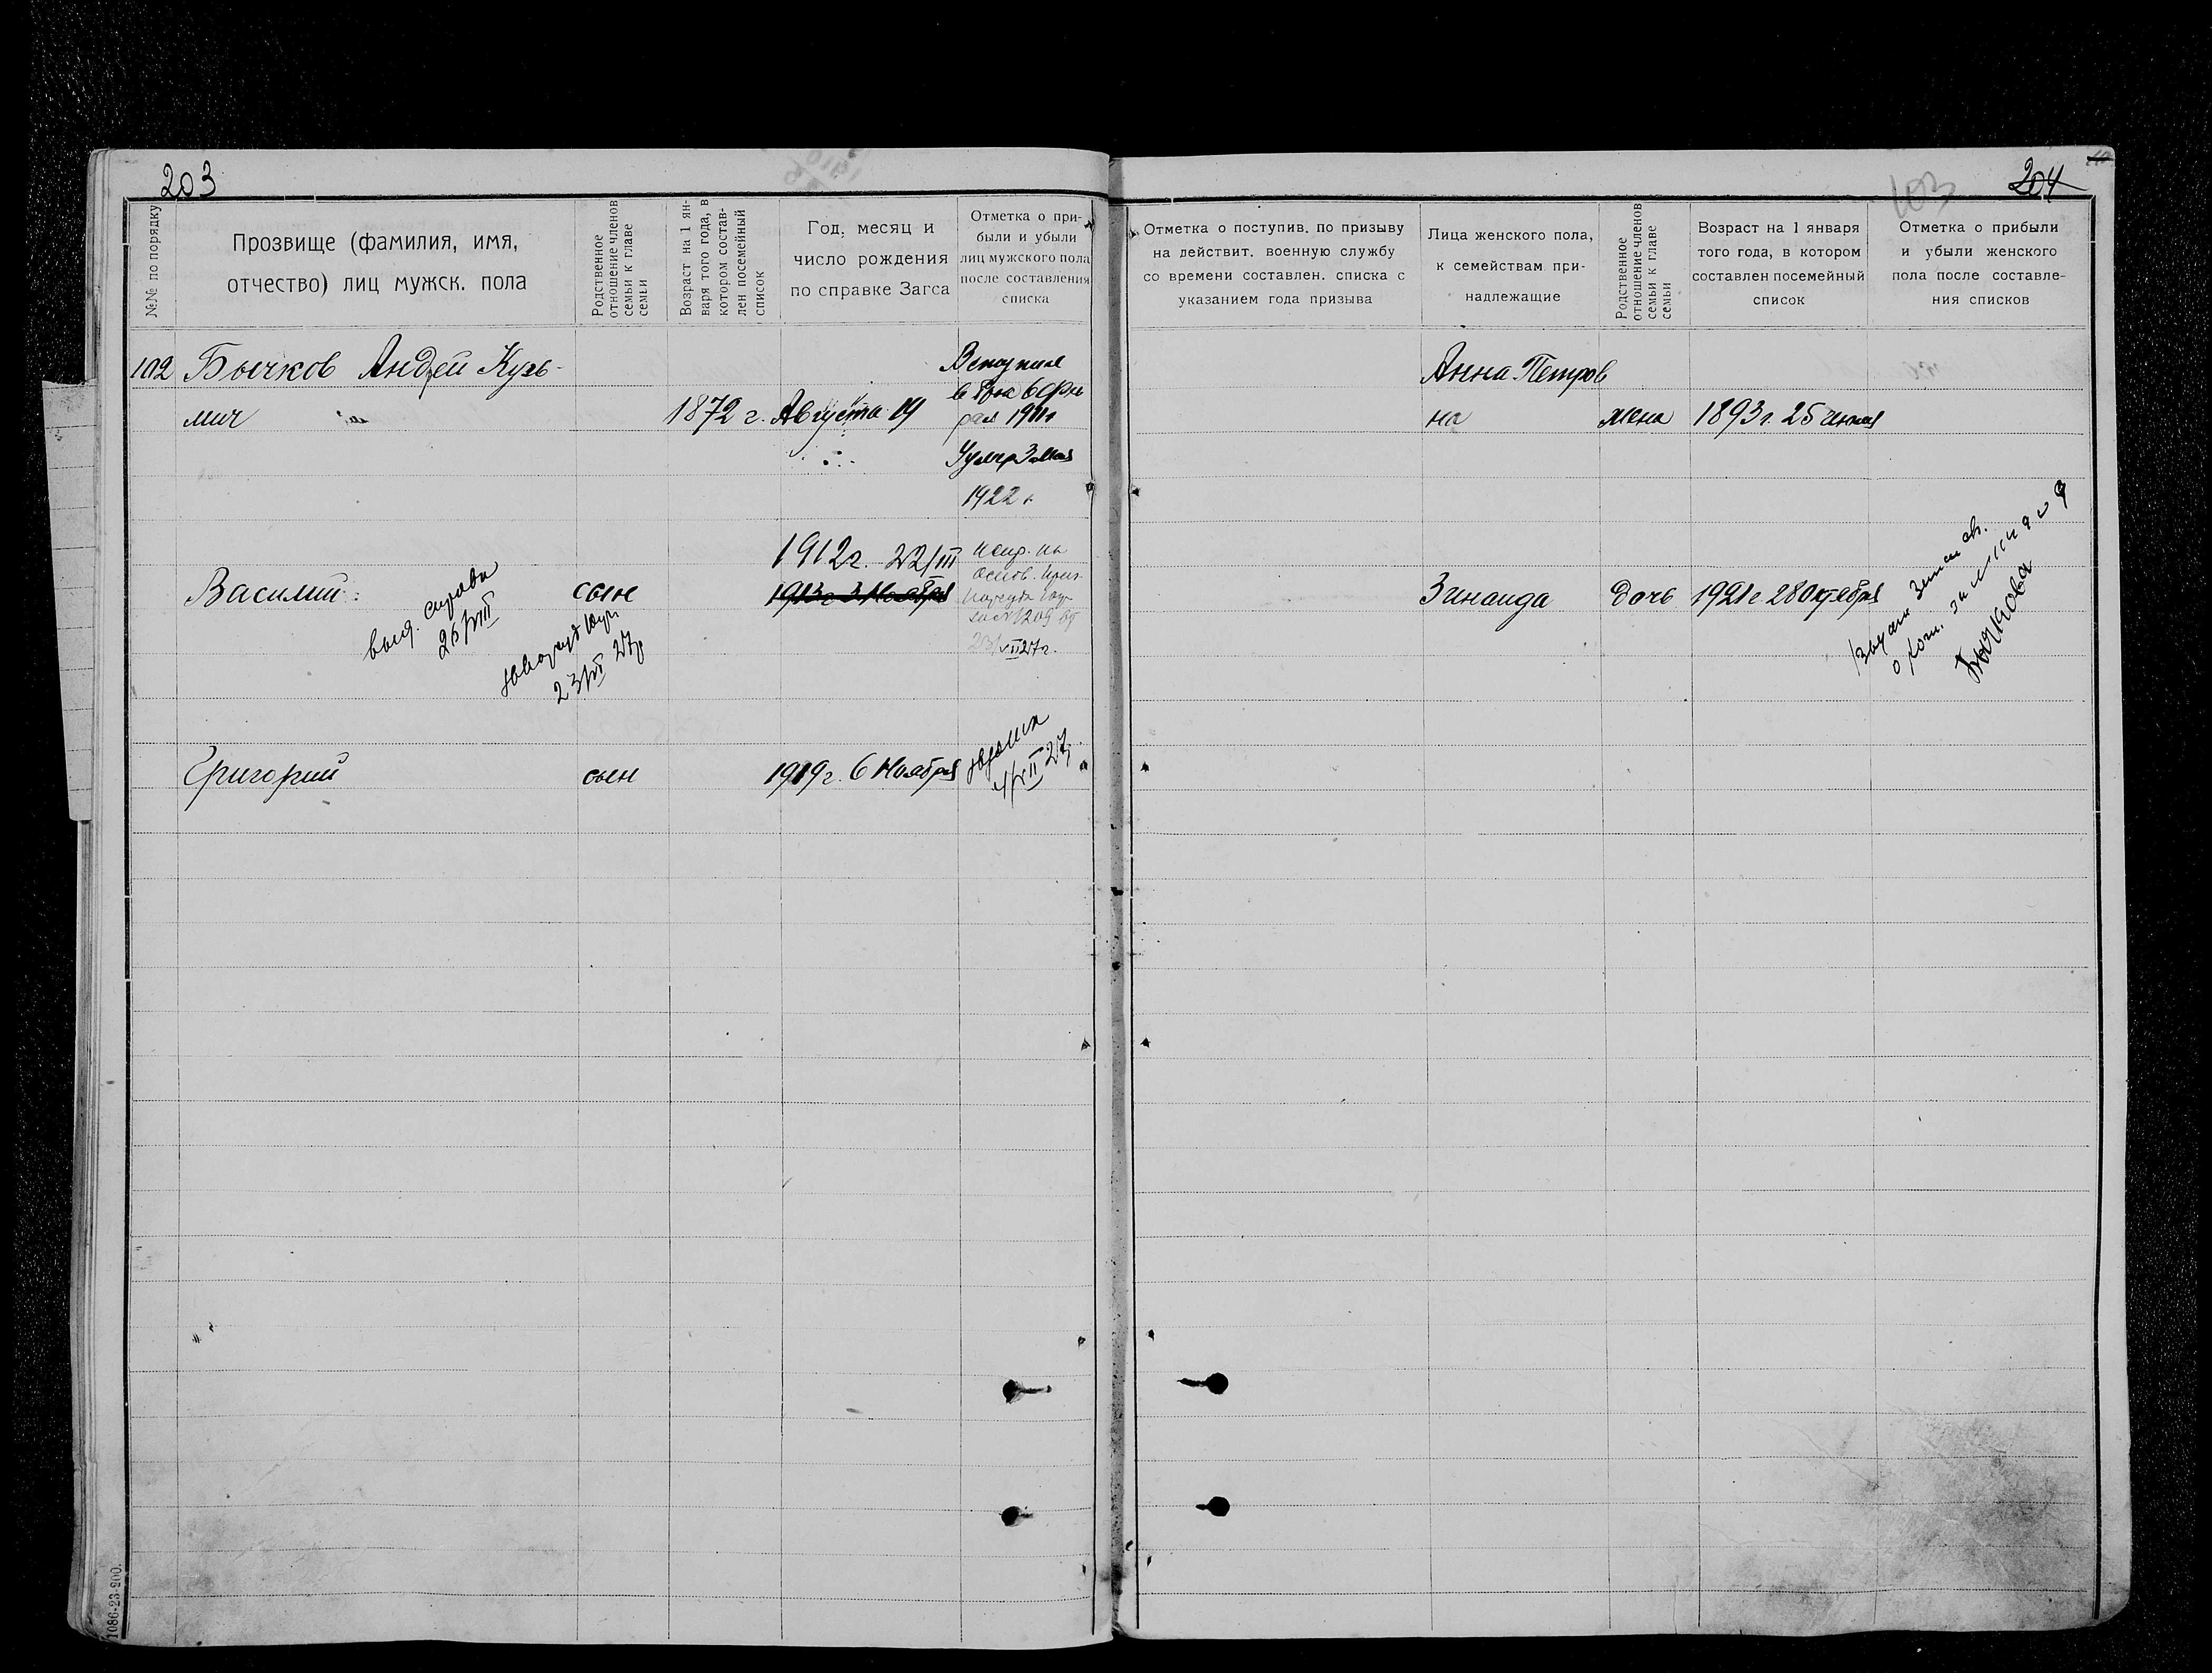 203
№№ по порядку
Прозвище (фамилия, имя,
отчество) лиц мужск. пола
Родственное
отношение членов
семьи к главе
семьи
Возраст на 1 ян-
варя того года, в
котором состав-
лен посемейный
список
Год, месяц и
число рождения
по справке Загса
Отметка о при-
были и убыли
лиц мужского пола
после составления
списка
102 Бычков Андрей Кузь-
мич 1872 г. Августа 19
6 фев
1922 г.
1912 г. 22/III
Испр. на
Василий сын 1913 г. 3 Ноября
основ.
выд. справка
26/VIII
23/VI 27
VII 27 г.
Григорий сын 1919 г. 6 Ноября
VII 27
1086-23-900.
103
204
Отметка о поступив. по призыву
на действит. военную службу
со времени составлен. списка с
указанием года призыва
Лица женского пола,
к семействам при-
надлежащие
Родственное
отношение членов
семьи к главе
семьи
Возраст на 1 января
того года, в котором
составлен посемейный
список
Отметка о прибыли
и убыли женского
пола после составле-
ния списков
Анна Петров
на жена 1893 г. 25 июня
Зинаида дочь 1921 г. 28 Октября
Бычкова